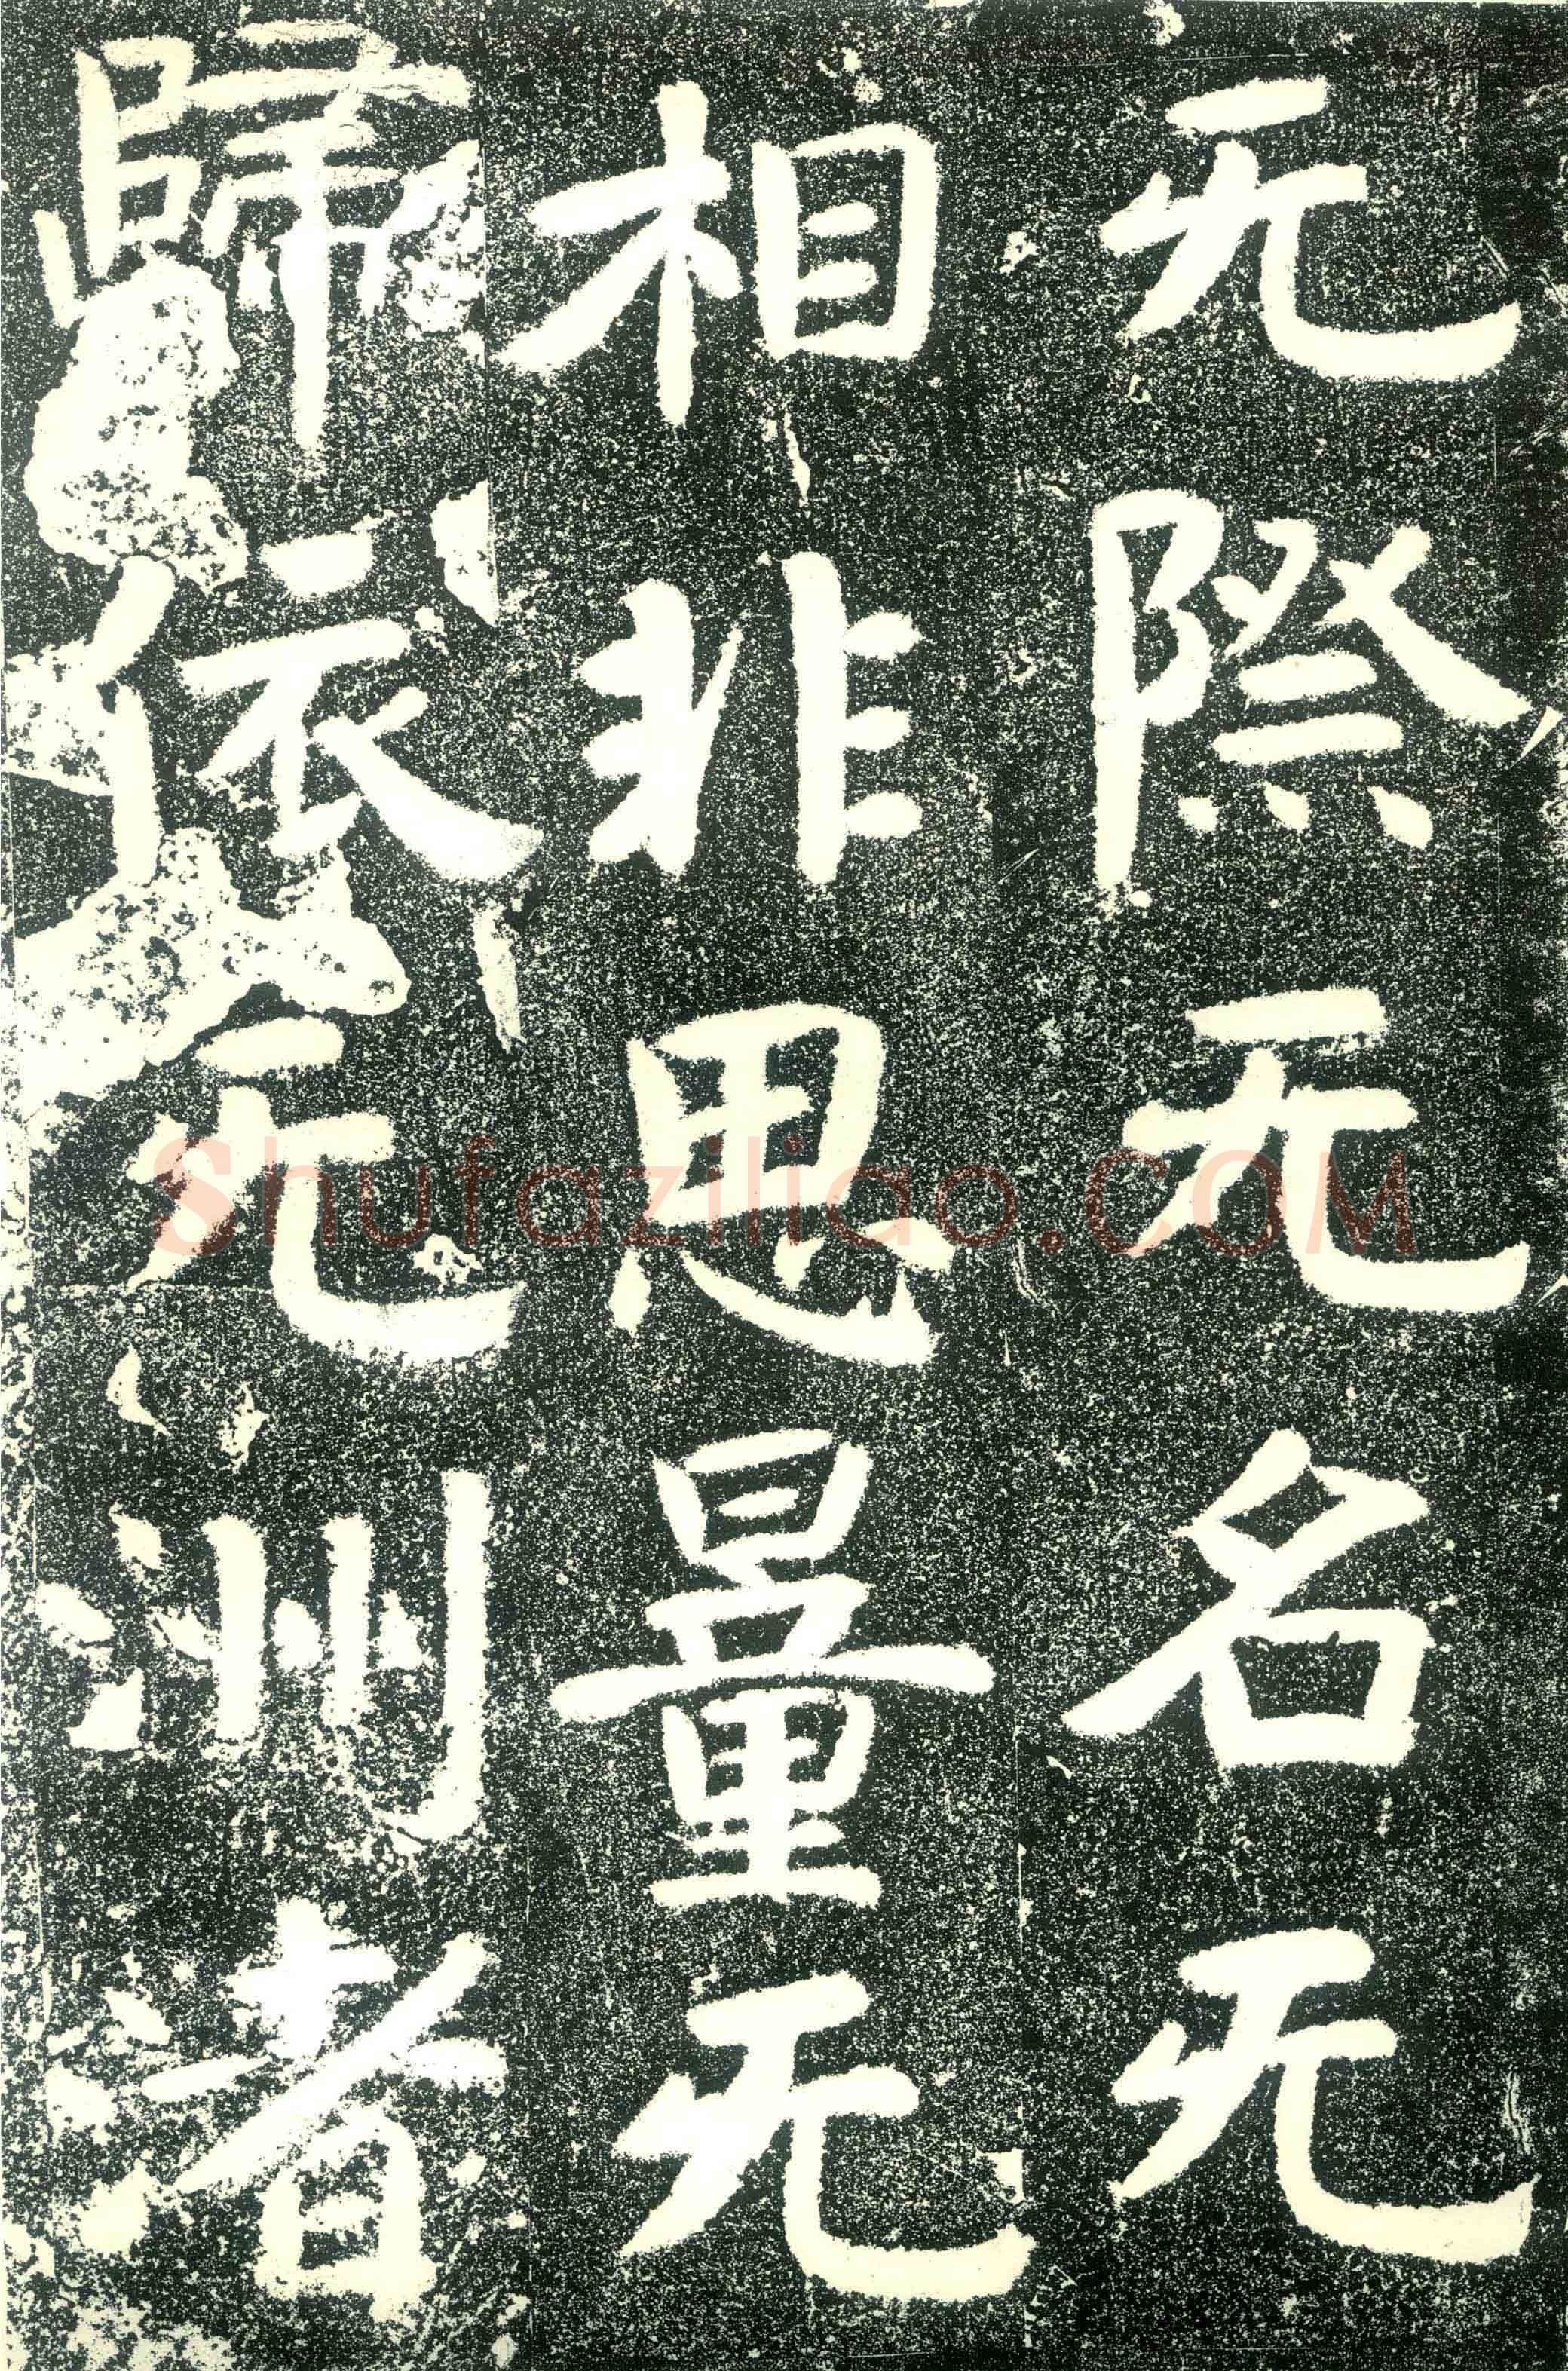 无際无名无
相非思量无
歸依无洲渚
Shufaziliao.COM